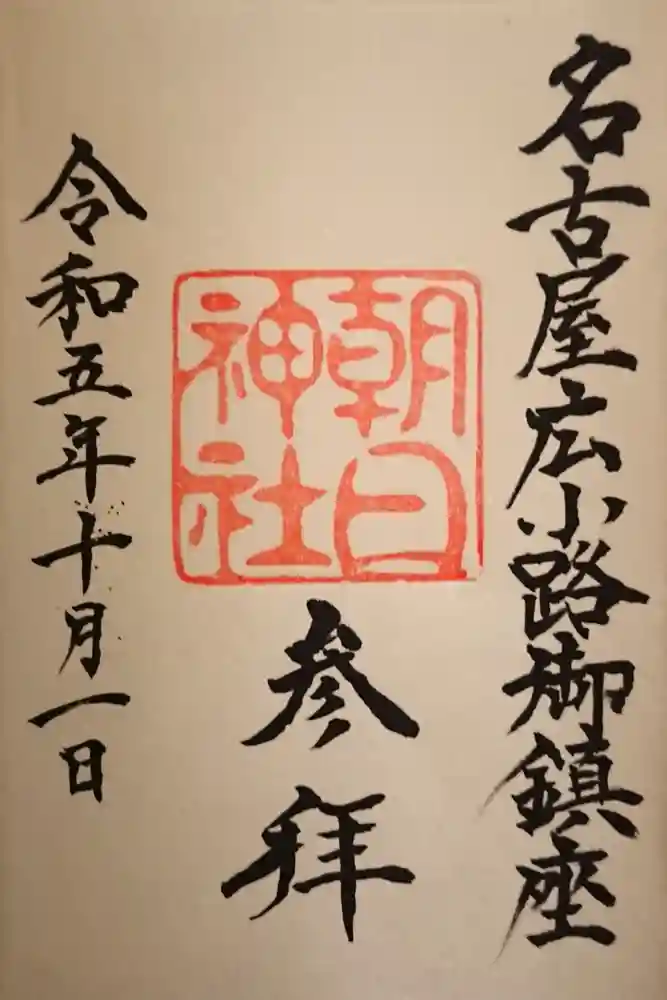 名古屋広小路御鎮座
朝日
神社
参拜
令和五年十月一日